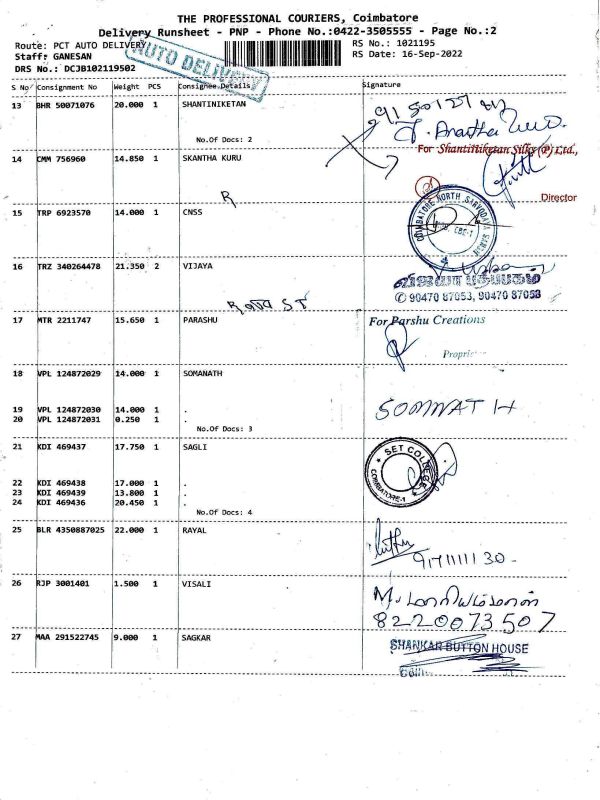 THE PROFESSIONAL COURIERS, Coimbatore
Delivery Runsheet - PNP - Phone No.:0422-3505555 - Page No.:2
Route: PCT AUTO DELIVERY
AUTO DELIVERY
RS No.: 1021195
Staff: GANESAN
RS Date: 16-Sep-2022
DRS No.: DCJB102119502
S No Consignment No Weight PCS Consignee Details Signature
13 BHR 50071076 20.000 1 SHANTINIKETAN
No.Of Docs: 2
For Shantiniketan Silks (P) Ltd.,
14 CMM 756960 14.850 1 SKANTHA KURU
Director
R
COIMBATORE NORTH SARVODAYA
15 TRP 6923570 14.000 1 CNSS
CBE-1
16 TRZ 340264478 21.350 2 VIJAYA
விஜயா பதிப்பகம்
✆ 90470 87053, 90470 87058
17 MTR 2211747 15.650 1 PARASHU
For Parshu Creations
18 VPL 124872029 14.000 1 SOMANATH
19 VPL 124872030 14.000 1 .
SOMNATH
20 VPL 124872031 0.250 1 .
No.Of Docs: 3
21 KDI 469437 17.750 1 SAGLI
SET COLLEGE
COIMBATORE-1
22 KDI 469438 17.000 1 .
23 KDI 469439 13.800 1 .
24 KDI 469436 20.450 1 .
No.Of Docs: 4
25 BLR 4350887025 22.000 1 RAYAL
26 RJP 3001401 1.500 1 VISALI
8220073507
27 MAA 291522745 9.000 1 SAGKAR
SHANKAR BUTTON HOUSE